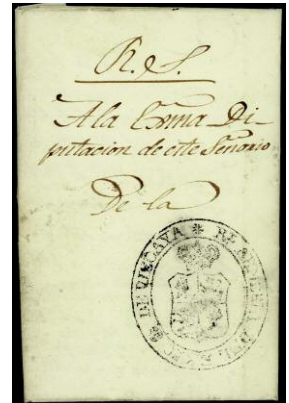 R. S.
A la Exma Di-
putacion de este Señorio
De la
DE VIZCAYA